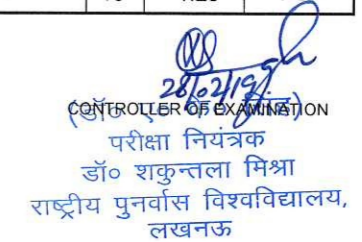 28/02/19
CONTROLLER OF EXAMINATION
(डॉ० ए०
परीक्षा नियंत्रक
डॉ० शकुन्तला मिश्रा
राष्ट्रीय पुनर्वास विश्वविद्यालय,
लखनऊ